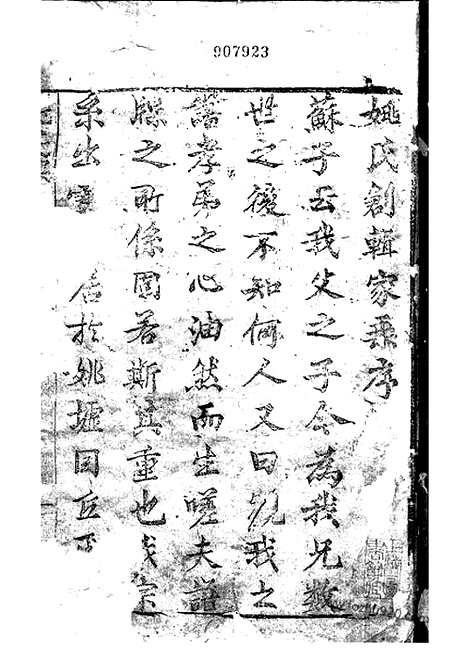 907923
姚氏創輯家乘序
蘇子云我父之子今為我兄數
世之後不知何人又曰觀我之
譜孝弟之心油然而生嗟夫譜
牒之所係固若斯其重也我宗
系出虞 居於姚墟因丘